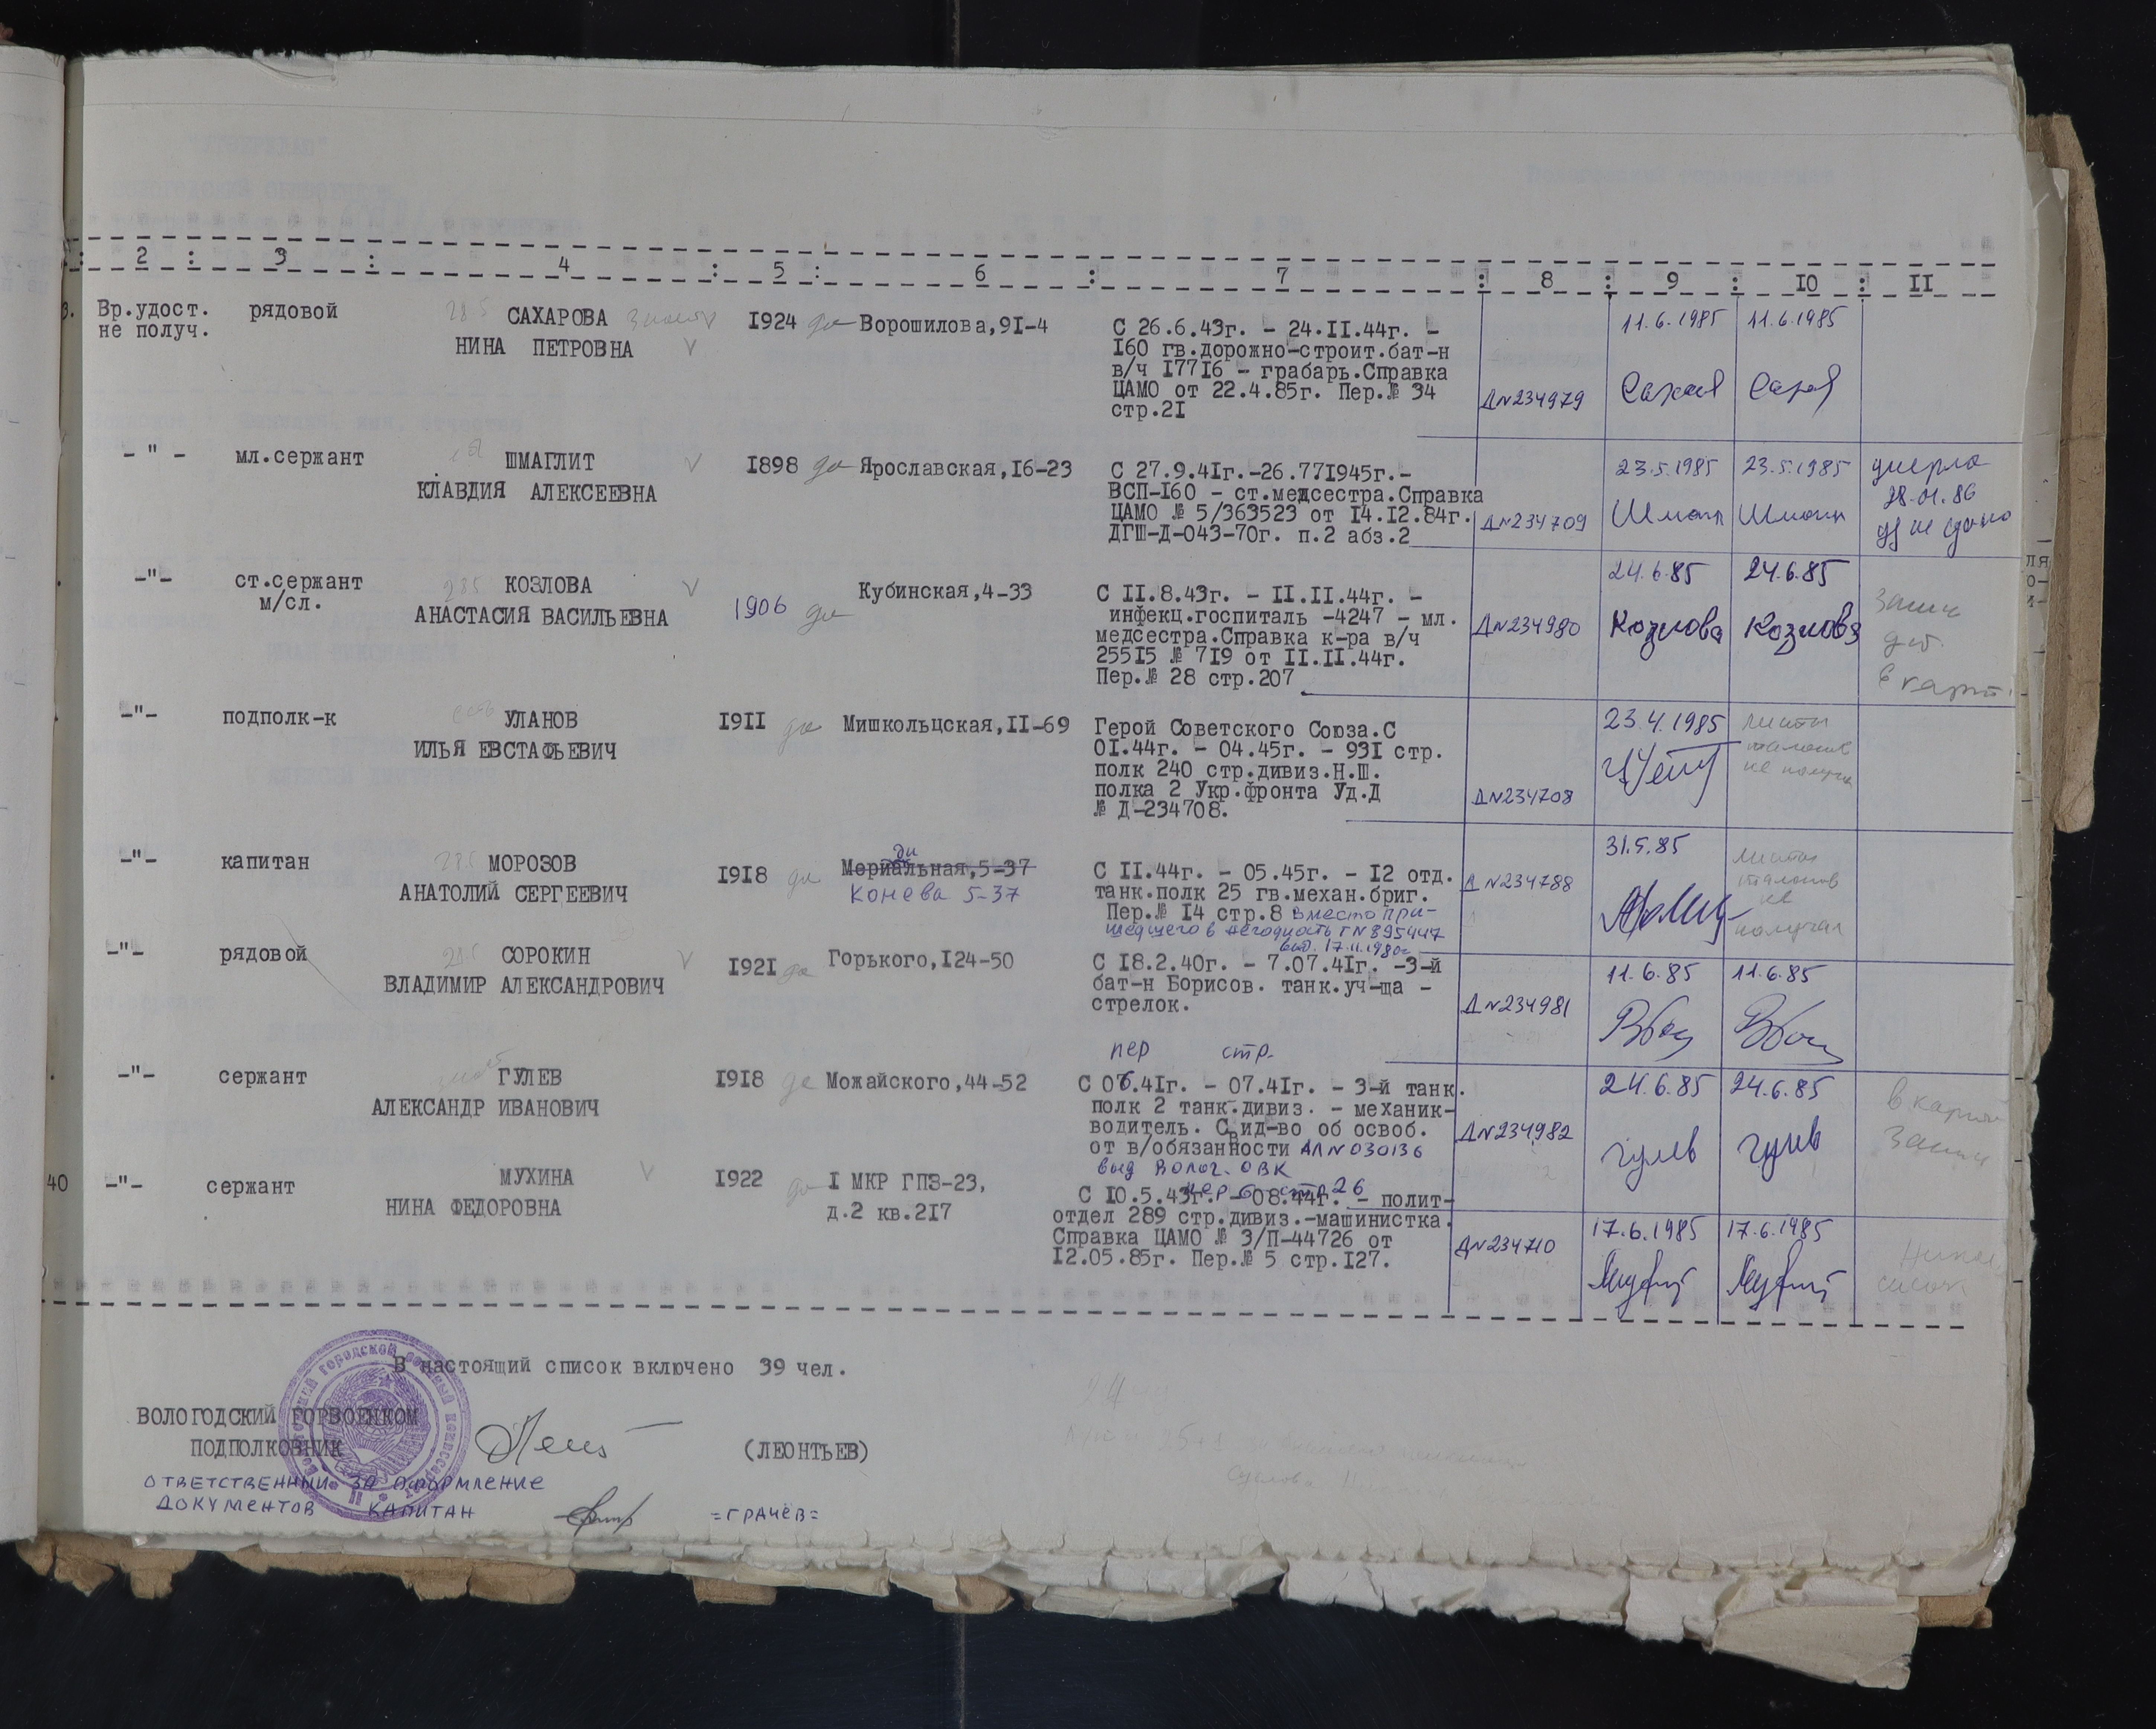 2 : 3 : 4 : 5 : 6 : 7 : 8 : 9 : 10 : II
3. Вр.удост. рядовой САХАРОВА 1924 да Ворошилова,9I-4
не получ. НИНА ПЕТРОВНА
С 26.6.43г. - 24.II.44г. -
I60 гв.дорожно-строит.бат-н
в/ч I77I6 - грабарь.Справка
ЦАМО от 22.4.85г. Пер.№ 34
стр.2I
Д№234979
11.6.1985 11.6.1985
- " - мл.сержант ШМАГЛИТ V I898 да Ярославская,I6-23
КЛАВДИЯ АЛЕКСЕЕВНА
С 27.9.4Iг.-26.77I945г.-
ВСП-I60 - ст.медсестра.Справка
ЦАМО № 5/363523 от I4.I2.84г.
ДГШ-Д-043-70г. п.2 абз.2
Д№234709
23.5.1985 23.5.1985
умерла
28.01.86
уд не сдано
-"- ст.сержант 285 КОЗЛОВА V 1906 да Кубинская,4-33
м/сл. АНАСТАСИЯ ВАСИЛЬЕВНА
С II.8.43г. - II.II.44г. -
инфекц.госпиталь -4247 - мл.
медсестра.Справка к-ра в/ч
255I5 № 7I9 от II.II.44г.
Пер.№ 28 стр.207
Д№234980
24.6.85 24.6.85
Козлова Козлова
-"- подполк-к УЛАНОВ I9II да Мишкольцская,II-69
ИЛЬЯ ЕВСТАФЬЕВИЧ
Герой Советского Союза.С
0I.44г. - 04.45г. - 93I стр.
полк 240 стр.дивиз.Н.Ш.
полка 2 Укр.фронта Уд.Д
№ Д-234708.
Д№234708
23.4.1985
листы
талонов
не получ
-"- капитан 285 МОРОЗОВ I9I8 да Мериальная,5-37
АНАТОЛИЙ СЕРГЕЕВИЧ Конева 5-37
С II.44г. - 05.45г. - I2 отд.
танк.полк 25 гв.механ.бриг.
Пер.№ I4 стр.8 вместо при-
шедшего в негодность Г№895447
выд. 17.11.1980г
Д№234788
31.5.85
листы
талонов
не
получал
-"- рядовой 285 СОРОКИН V I92I да Горького,I24-50
ВЛАДИМИР АЛЕКСАНДРОВИЧ
С I8.2.40г. - 7.07.4Iг. -3-й
бат-н Борисов. танк.уч-ща -
стрелок.
пер стр.
Д№234981
11.6.85 11.6.85
-"- сержант ГУЛЕВ I9I8 да Можайского,44-52
АЛЕКСАНДР ИВАНОВИЧ
С 06.4Iг. - 07.4Iг. - 3-й танк.
полк 2 танк.дивиз. - механик-
водитель. Свид-во об освоб.
от в/обязанности АЛ№030136
выд Волог. ОВК
пер 6 стр 26
Д№234982
24.6.85 24.6.85
Гулев Гулев
40 -"- сержант МУХИНА V I922 да I МКР ГПЗ-23,
НИНА ФЕДОРОВНА д.2 кв.2I7
С I0.5.43г. - 08.44г. - полит-
отдел 289 стр.дивиз.-машинистка.
Справка ЦАМО № 3/П-44726 от
I2.05.85г. Пер.№ 5 стр.I27.
Д№234710
17.6.1985 17.6.1985
В настоящий список включено 39 чел.
ВОЛОГОДСКИЙ ГОРВОЕНКОМ
ПОДПОЛКОВНИК (ЛЕОНТЬЕВ)
ОТВЕТСТВЕННЫЙ ЗА ОФОРМЛЕНИЕ
ДОКУМЕНТОВ КАПИТАН =ГРАЧЁВ=